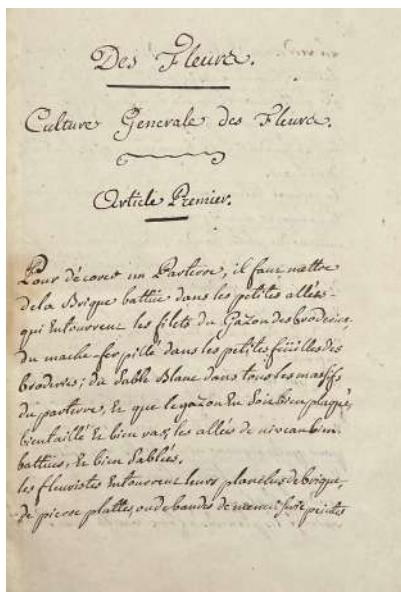 Des Fleurs.
Culture Generale des Fleurs.
Article Premier.
Pour décorer un Parterre, il faut mettre
de la Brique battüe dans les petites allés
qui Entourrent les filets du Gazon des broderies,
du mache-fer pillé dans les petites feüilles des
broderies; du Sable Blanc dans tous les massifs
du parterre, Et que le gazon En soit bien plaqué,
bien taillé Et bien ras, les allés de niveau bien
battües, Et bien Sablées.
les fleuristes Entourrent leurs planches de brique,
de pierre plattes, ou de bandes de menuiserie peintes